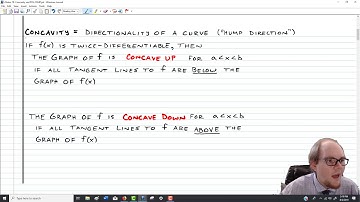 CONCAVITY = DIRECTIONALITY OF A CURVE ("HUMP DIRECTION")
IF f(x) IS TWICE-DIFFERENTIABLE, THEN
THE GRAPH OF f IS CONCAVE UP FOR a<x<b
IF ALL TANGENT LINES TO f ARE BELOW THE
GRAPH OF f(x)
THE GRAPH OF f IS CONCAVE DOWN FOR a<x<b
IF ALL TANGENT LINES TO f ARE ABOVE THE
GRAPH OF f(x)